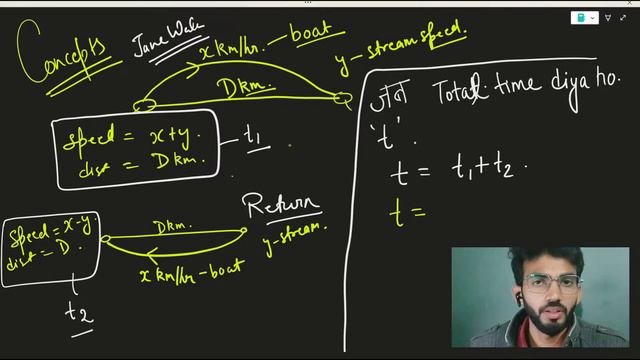 Concepts
Jane Wala
x km/hr. — boat
y - stream speed.
D km.
Speed = x+y.
dist = D km.
t₁
Speed = x-y.
dist = D.
t₂
D km.
Return
y-stream.
x km/hr - boat
जब Total time diya ho.
't'.
t = t₁ + t₂.
t =